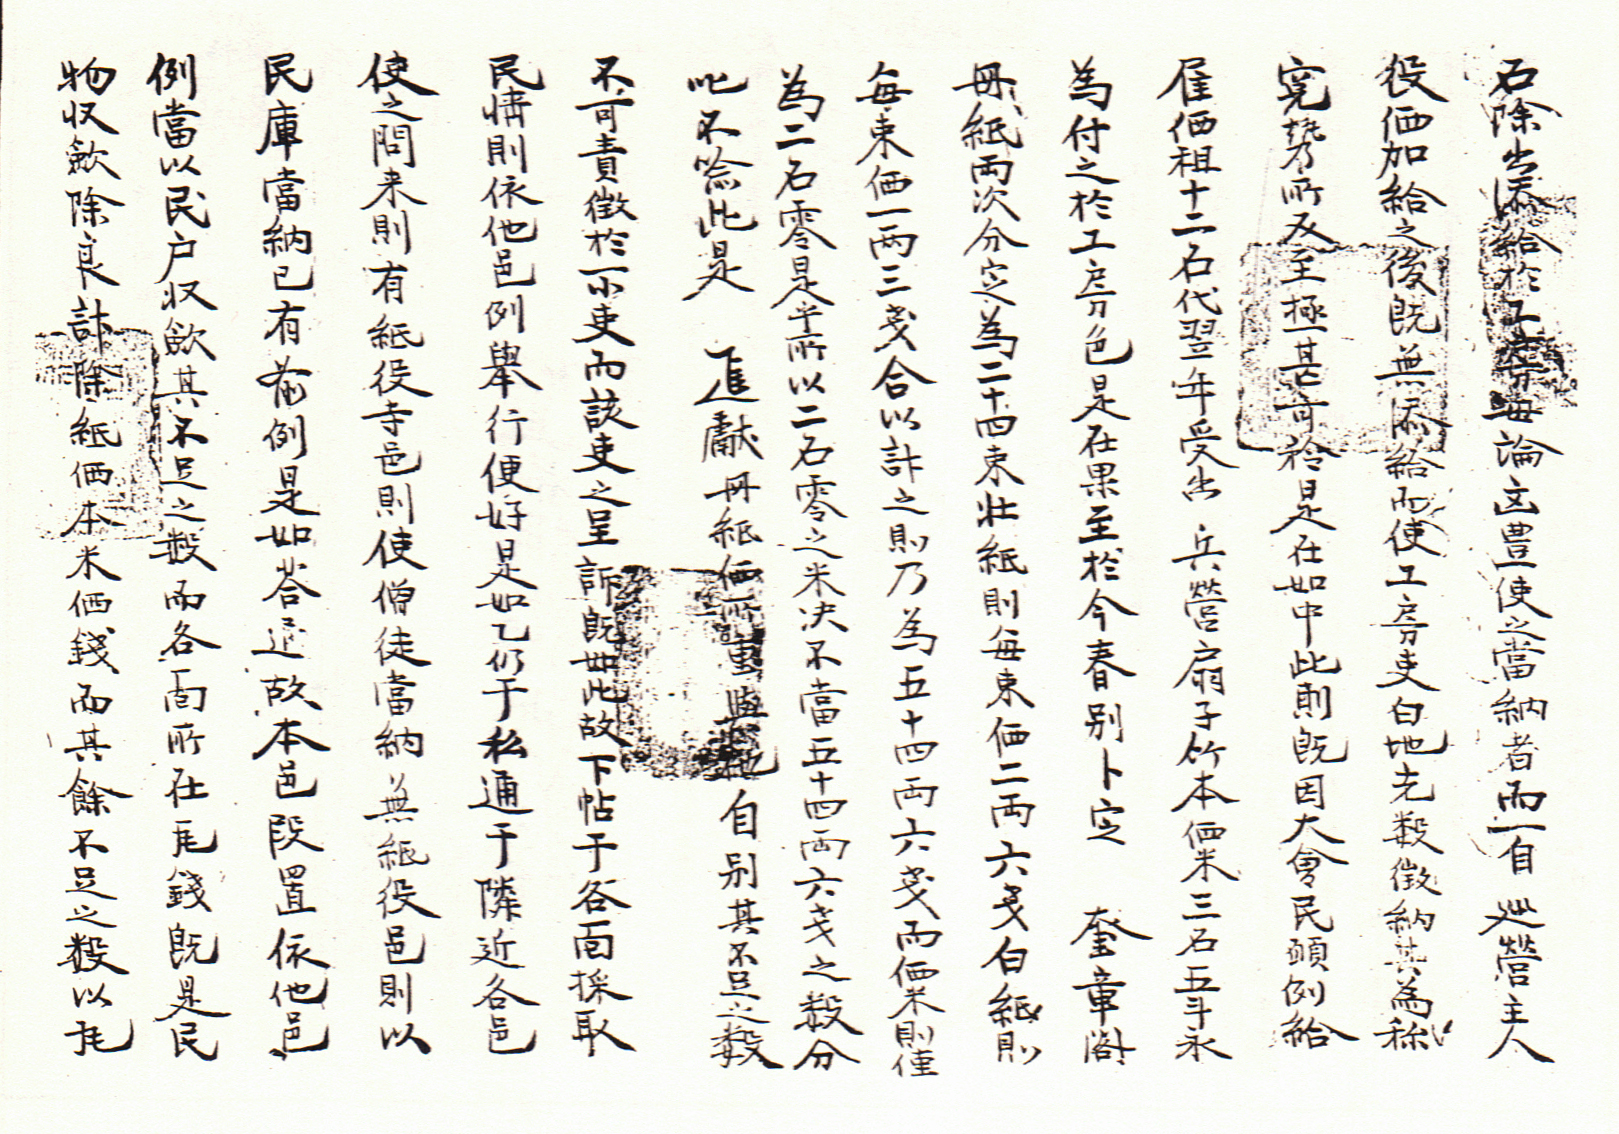 石除出添給於工房毋論凶豊使之當納者而一自 巡營主人
役価加給之後既無添給而使工房吏白地充數徵納其為称
寃勢所及至極甚可矜是在如中此則既因大會民願例給
雇価租十二石代翌年受出 兵營扇子竹本価米三石五斗永
為付之於工房色是在果至於今春別卜定 奎章閣
冊紙両次分定為二十四束壮紙則每束価二両六戔白紙則
每束価一両三戔合以計之則乃為五十四両六戔而価米則僅
為二石零是乎所以二石零之米决不當五十四両六戔之數分
叱不喩此是 進獻冊紙価所重與他自別其不足之數
不可責徵於一小吏而該吏之呈訴既如此故下帖于各面採取
民情則依他邑例舉行便好是如乙仍于私通于隣近各邑
使之問来則有紙役寺邑則使僧徒當納無紙役邑則以
民庫當納已有前例是如荅通故本邑段置依他邑
例當以民户収歛其不足之數而各面所在耗錢既是民
物収歛除良計除紙価本米価錢而其餘不足之數以耗